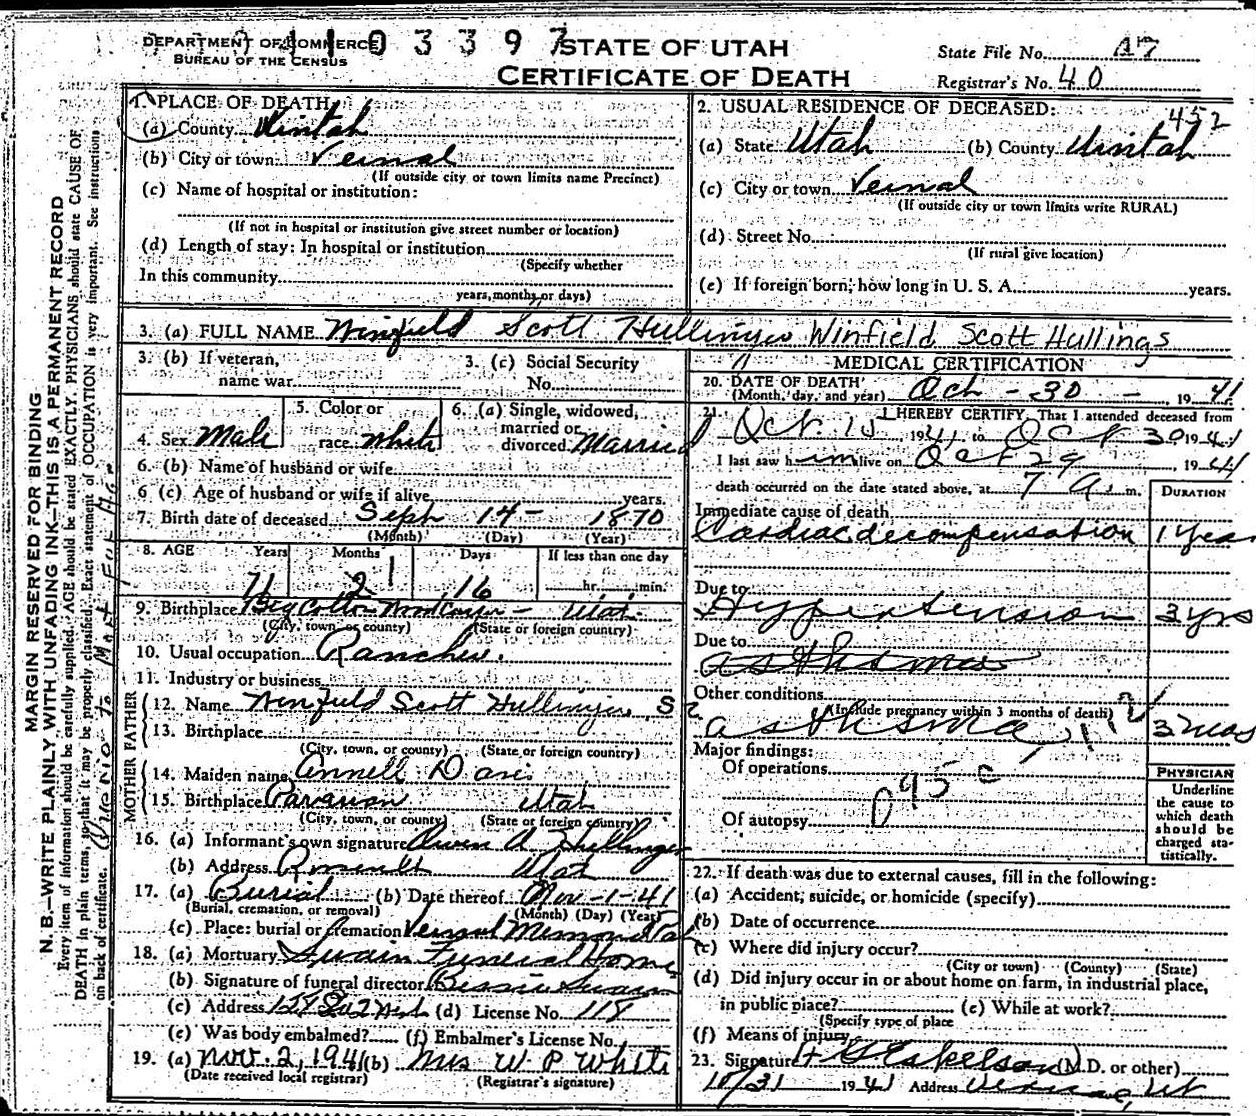 DEPARTMENT OF COMMERCE
BUREAU OF THE CENSUS
1 1 0 3 3 9 7
STATE OF UTAH
CERTIFICATE OF DEATH
State File No. 47
Registrar's No. 40
MARGIN RESERVED FOR BINDING
N. B.—WRITE PLAINLY WITH UNFADING INK—THIS IS A PERMANENT RECORD
Every item of information should be carefully supplied. AGE should be stated EXACTLY. PHYSICIANS should state CAUSE OF
DEATH in plain terms, so that it may be properly classified. Exact statement of OCCUPATION is very important. See instructions
on back of certificate.
1. PLACE OF DEATH
(a) County Uintah
(b) City or town Vernal
(If outside city or town limits name Precinct)
(c) Name of hospital or institution:
(If not in hospital or institution give street number or location)
(d) Length of stay: In hospital or institution
(Specify whether
In this community
years, months, or days)
2. USUAL RESIDENCE OF DECEASED:
452
(a) State Utah (b) County Uintah
(c) City or town Vernal
(If outside city or town limits write RURAL)
(d) Street No.
(If rural give location)
(e) If foreign born, how long in U. S. A. years.
3. (a) FULL NAME Winfield Scott Hullinger Winfield Scott Hullings
3. (b) If veteran,
name war
3. (c) Social Security
No.
4. Sex Male
5. Color or
race White
6. (a) Single, widowed,
married or
divorced Married
6. (b) Name of husband or wife
6 (c) Age of husband or wife if alive years.
7. Birth date of deceased Sept 14 - 1870
(Month) (Day) (Year)
8. AGE Years Months Days If less than one day
71 2 1 16 hr. min.
9. Birthplace Big Cotton Wood Canyon - Utah
(City, town, or county) (State or foreign country)
10. Usual occupation Rancher.
11. Industry or business
FATHER
12. Name Winfield Scott Hullinger S
13. Birthplace
(City, town, or county) (State or foreign country)
MOTHER
14. Maiden name Annell Davis
15. Birthplace Parawan Utah
(City, town, or county) (State or foreign country)
16. (a) Informant's own signature Owen A Hullinger
(b) Address Roosevelt Utah
17. (a) Burial (b) Date thereof Nov-1-41
(Burial, cremation, or removal) (Month) (Day) (Year)
(c) Place: burial or cremation Vernal Memorial
18. (a) Mortuary Swain Funeral Home
(b) Signature of funeral director Bessie Swain
(c) Address (d) License No. 118
(e) Was body embalmed? (f) Embalmer's License No.
19. (a) Nov. 2, 1941 (b) Mrs W P White
(Date received local registrar) (Registrar's signature)
MEDICAL CERTIFICATION
20. DATE OF DEATH
(Month, day, and year) Oct - 30 - , 19 41
21. I HEREBY CERTIFY, That I attended deceased from
Oct. 15 1941 to Oct 30 1941
I last saw him alive on Oct 29 , 1941
death occurred on the date stated above, at 7 A. m.
DURATION
Immediate cause of death
Cardiac decompensation 1 Year
Due to
Hypertension 3 yrs
Due to
asthma
Other conditions
(Include pregnancy within 3 months of death)
asthma 3 mos
Major findings:
Of operations
95c
Of autopsy
PHYSICIAN
Underline
the cause to
which death
should be
charged sta-
tistically.
22. If death was due to external causes, fill in the following:
(a) Accident, suicide, or homicide (specify)
(b) Date of occurrence
(c) Where did injury occur?
(City or town) (County) (State)
(d) Did injury occur in or about home on farm, in industrial place,
in public place? (e) While at work?
(Specify type of place
(f) Means of injury
23. Signature Eskelson (M.D. or other)
10/31 1941 Address Vernal, Ut